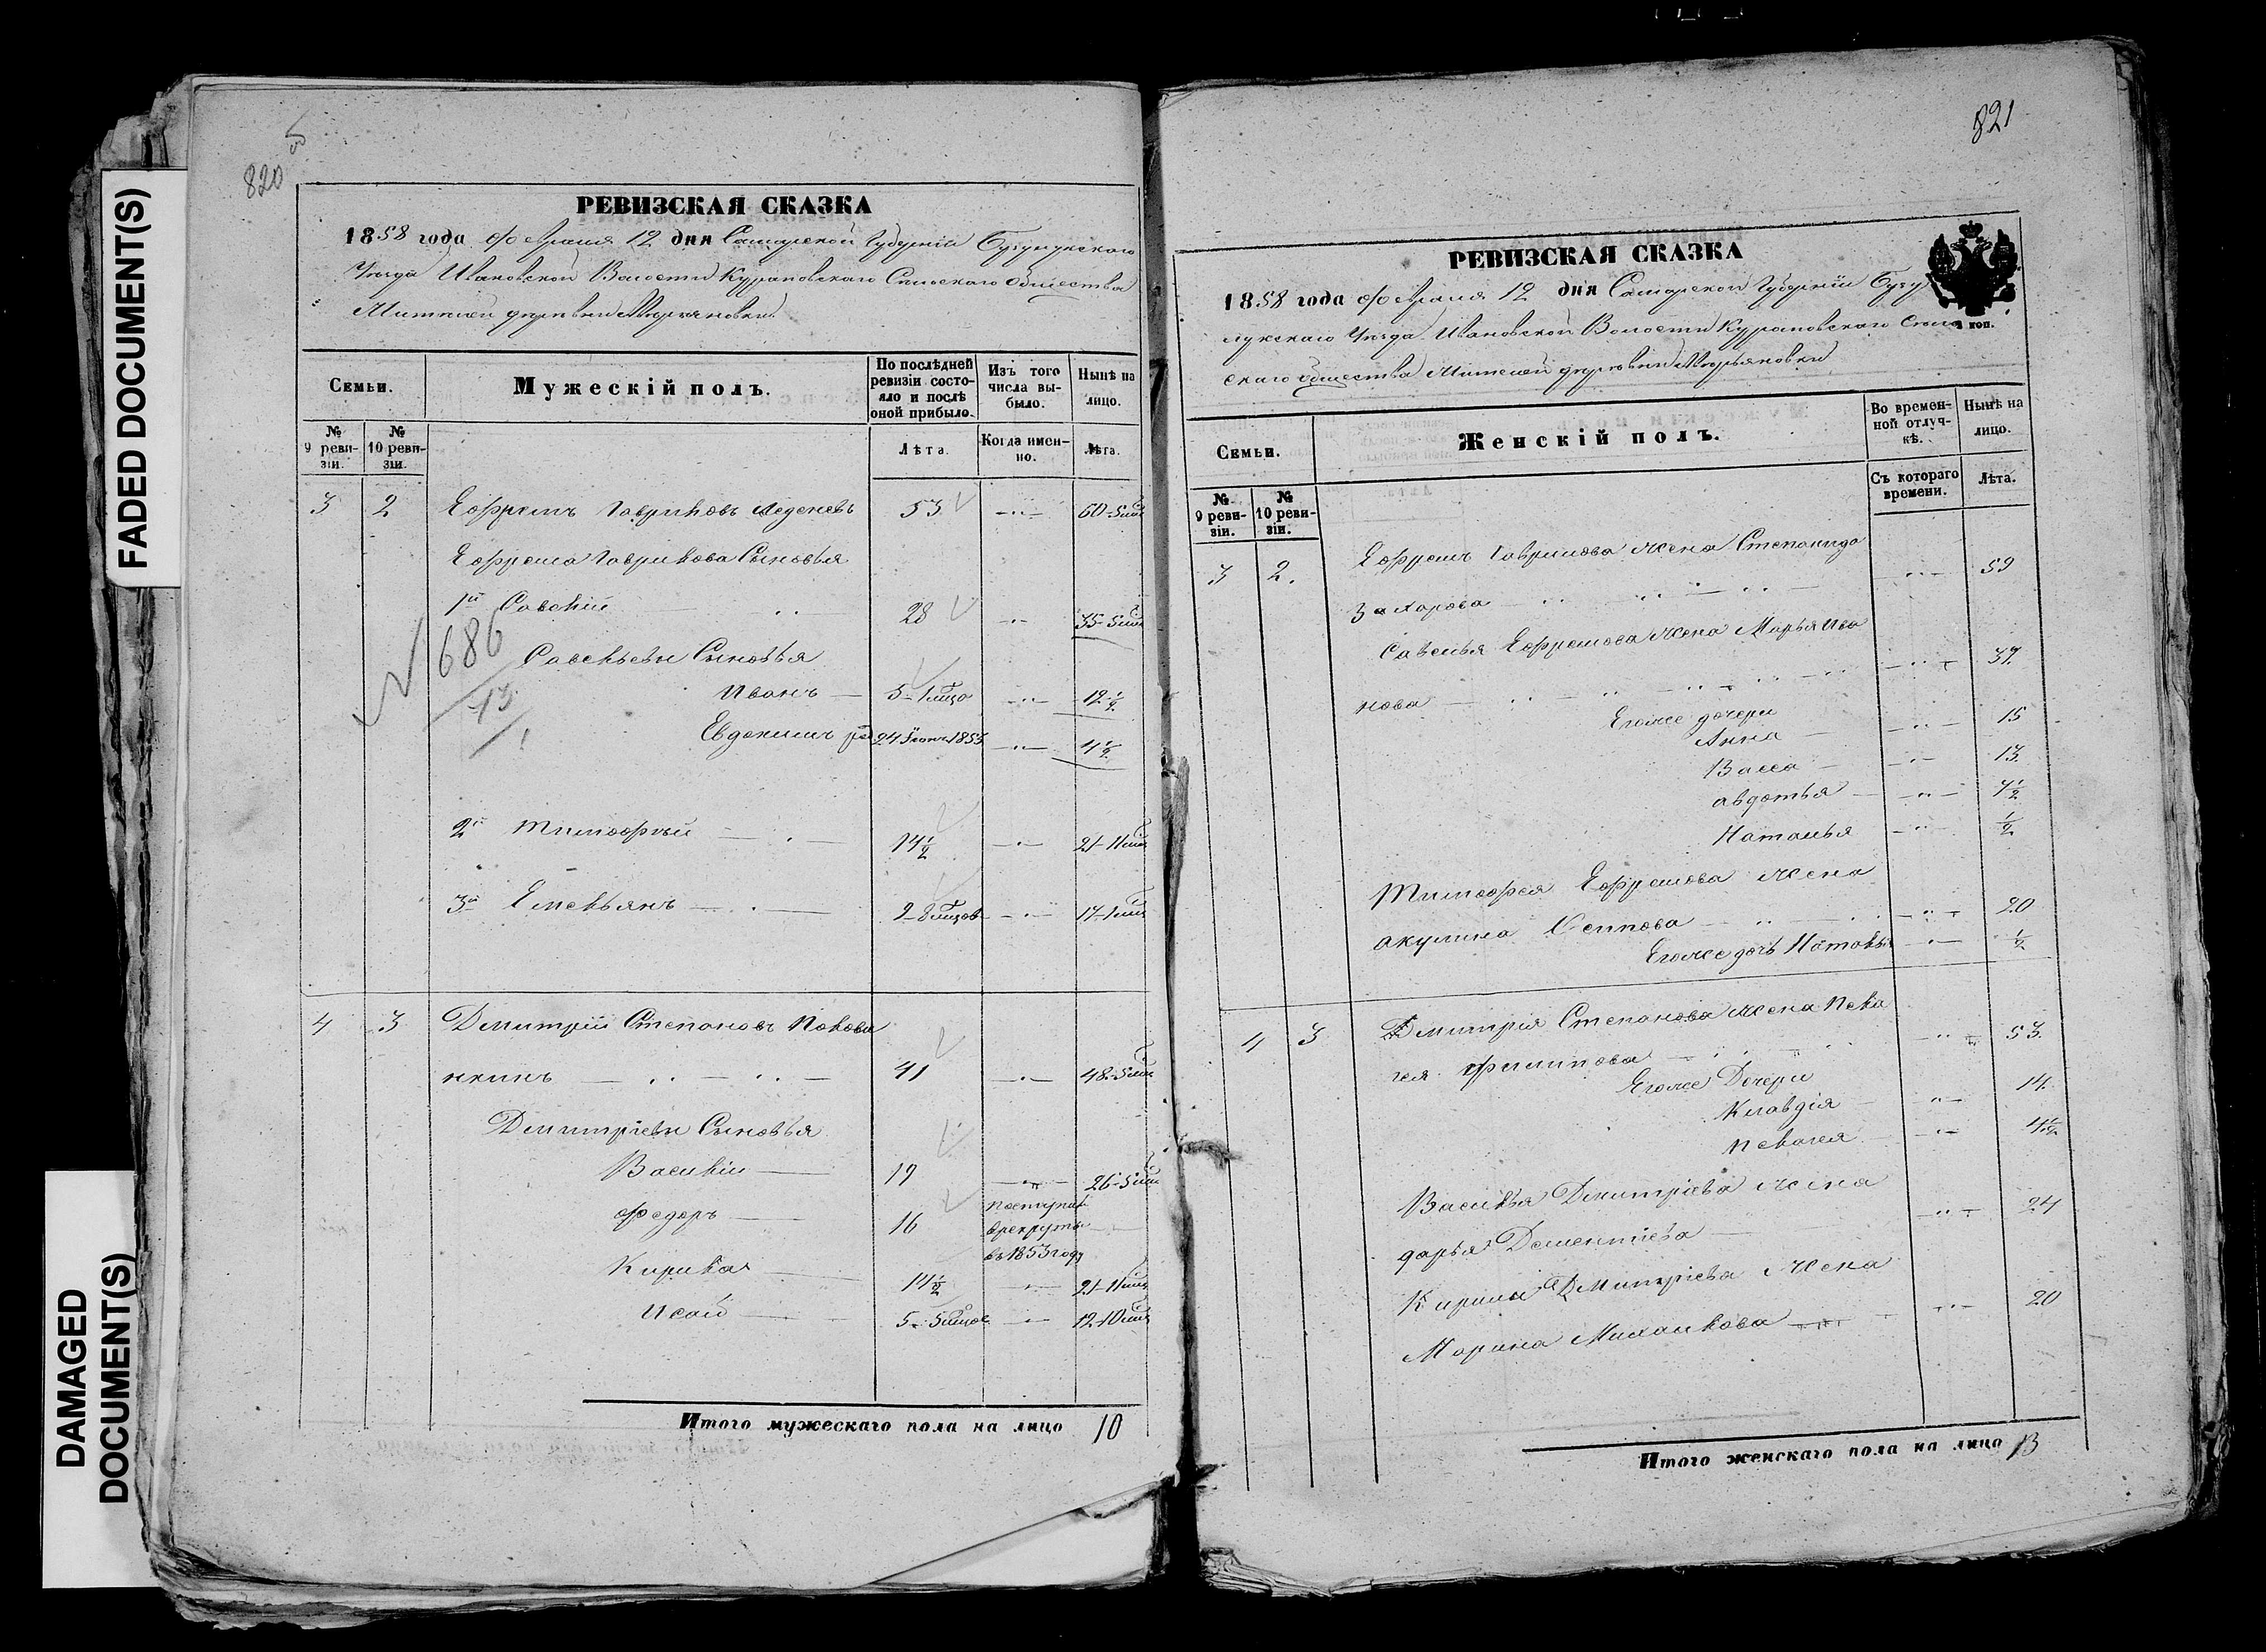 FADED DOCUMENT(S)
DAMAGED
DOCUMENT(S)
820 об
РЕВИЗСКАЯ СКАЗКА
1858 года февраля 12 дня Самарской Губерніи Бузулукскаго
Уѣзда Ивановской Волости Курановскаго Сельскаго общества
деревни Марьяновки
Семьи.
Мужескій полъ.
По послѣдней
ревизіи состо-
яло и послѣ
оной прибыло.
Изъ того
числа вы-
было.
Нынѣ на
лицо.
№
9 реви-
зіи.
№
10 реви-
зіи.
Лѣта.
Когда имен-
но.
Лѣта.
3 2 Ефремъ Гавриловъ Леденевъ 53 60-5
Ефрема Гаврилова Сыновья
1й Савелій 28 35-5
686
13
1
Савельевы Сыновья
Иванъ 5-1 12 1/2
Евдокимъ 24 Іюня 1853 4 1/2
2й Тимофѣй 14 1/2 21-11
3й Емельянъ 9-8 17-1
4 3 Дмитрій Степановъ Покова
нкинъ 41 48-5
Дмитріевы Сыновья
Василій 19 26-5
Федоръ 16 поступил
в рекруты
въ 1853 году
Кирила 14 1/2 21-11
Исай 5-5 12-10
Итого мужескаго пола на лицо 10
821
РЕВИЗСКАЯ СКАЗКА
1858 года февраля 12 дня Самарской Губерніи Бузу
лукскаго Уѣзда Ивановской Волости Курановскаго Сель
скаго общества деревни Марьяновки
коп.
Семьи.
Женскій полъ.
Во времен-
ной отлуч-
кѣ.
Нынѣ на
лицо.
№
9 реви-
зіи.
№
10 реви-
зіи.
Съ котораго
времени.
Лѣта.
3 2. Ефрема Гаврилова жена Степанида
Захарова 59
Савелья Ефремова жена Марья Ива
нова 37.
Егоже дочери
Анна 15
Васса 13.
Авдотья 4 1/2
Наталья 1/2
Тимофея Ефремова жена
Акулина Осипова 20
Егоже дочь Наталья 1/2
4 3 Дмитрія Степанова жена Пела
гея Филипова 53.
Егоже Дочери
Клавдія 14.
Пелагея
Василья Дмитріева жена
Дарья Дементіева 24
Кирилы Дмитріева жена
Марина Михаилова 20
Итого женскаго пола на лицо 13